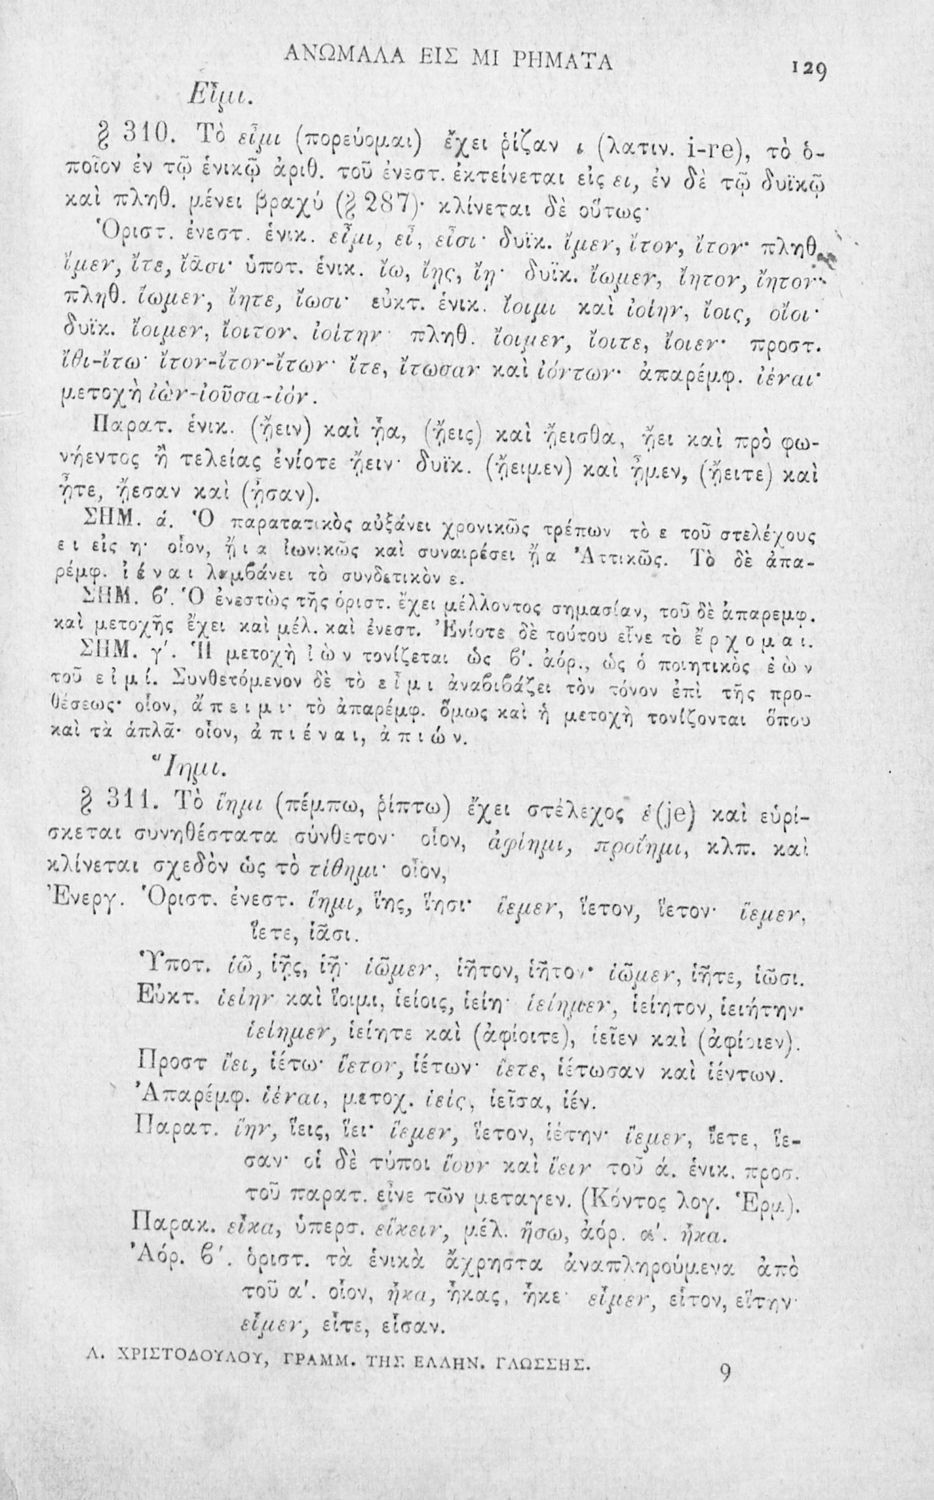 ΑΝΩΜΑΛΑ ΕΙΣ ΜΙ ΡΗΜΑΤΑ
129
Εἶμι.
§ 310. Τὸ εἶμι (πορεύομαι) ἔχει ῥίζαν ι (λατιν. i-re), τὸ ὁ-
ποῖον ἐν τῷ ἑνικῷ ἀριθ. τοῦ ἐνεστ. ἐκτείνεται εἰς ει, ἐν δὲ τῷ δυϊκῷ
καὶ πληθ. μένει βραχύ (§ 287)· κλίνεται δὲ οὕτως·
Ὁριστ. ἐνεστ. ἑνικ. εἶμι, εἶ, εἶσι· δυϊκ. ἴμεν, ἴτον, ἴτον· πληθ.
ἴμεν, ἴτε, ἴᾱσι· ὑποτ. ἑνικ. ἴω, ἴῃς, ἴῃ· δυϊκ. ἴωμεν, ἴητον, ἴητον·
πληθ. ἴωμεν, ἴητε, ἴωσι· εὐκτ. ἑνικ. ἴοιμι καὶ ἰοίην, ἴοις, οἴοι·
δυϊκ. ἴοιμεν, ἴοιτον, ἰοίτην· πληθ. ἴοιμεν, ἴοιτε, ἴοιεν· προστ.
ἴθι-ἴτω· ἴτον-ἴτον-ἴτων· ἴτε, ἴτωσαν καὶ ἰόντων· ἀπαρέμφ. ἰέναι·
μετοχὴ ἰὼν-ἰοῦσα-ἰόν.
Παρατ. ἑνικ. (ᾔειν) καὶ ᾖα, (ᾔεις) καὶ ᾔεισθα, ᾔει καὶ πρὸ φω-
νήεντος ἢ τελείας ἐνίοτε ᾔειν· δυϊκ. (ᾔειμεν) καὶ ᾖμεν, (ᾔειτε) καὶ
ᾖτε, ᾔεσαν καὶ (ᾖσαν).
ΣΗΜ. ά. Ὁ παρατατικὸς αὐξάνει χρονικῶς τρέπων τὸ ε τοῦ στελέχους
ε ι εἰς η· οἷον, ἤ ι α ἰωνικῶς καὶ συναιρέσει ᾖ α Ἀττικῶς. Τὸ δὲ ἀπα-
ρέμφ. ἰ έ ν α ι λαμβάνει τὸ συνδετικὸν ε.
ΣΗΜ. β'. Ὁ ἐνεστὼς τῆς ὁριστ. ἔχει μέλλοντος σημασίαν, τοῦ δὲ ἀπαρεμφ.
καὶ μετοχῆς ἔχει καὶ μέλ. καὶ ἐνεστ. Ἐνίοτε δὲ τούτου εἶνε τὸ ἔ ρ χ ο μ α ι.
ΣΗΜ. γ'. Ἡ μετοχὴ ἰ ὼ ν τονίζεται ὡς β'. ἀόρ., ὡς ὁ ποιητικὸς ἐ ὼ ν
τοῦ ε ἰ μ ί. Συνθετόμενον δὲ τὸ ε ἶ μ ι ἀναβιβάζει τὸν τόνον ἐπὶ τῆς προ-
θέσεως· οἷον, ἄ π ε ι μ ι· τὸ ἀπαρέμφ. ὅμως καὶ ἡ μετοχὴ τονίζονται ὅπου
καὶ τὰ ἁπλᾶ· οἷον, ἀ π ι έ ν α ι, ἀ π ι ώ ν.
Ἵημι.
§ 311. Τὸ ἵημι (πέμπω, ῥίπτω) ἔχει στέλεχος ἑ(je) καὶ εὑρί-
σκεται συνηθέστατα σύνθετον· οἷον, ἀφίημι, προΐημι, κλπ. καὶ
κλίνεται σχεδὸν ὡς τὸ τίθημι· οἷον,
Ἐνεργ. Ὁριστ. ἐνεστ. ἵημι, ἵης, ἵησι· ἵεμεν, ἵετον, ἵετον· ἵεμεν,
ἵετε, ἱᾶσι.
Ὑποτ. ἱῶ, ἱῇς, ἱῇ· ἱῶμεν, ἱῆτον, ἱῆτον· ἱῶμεν, ἱῆτε, ἱῶσι.
Εὐκτ. ἱείην καὶ ἵοιμι, ἱείοις, ἱείη· ἱείημεν, ἱείητον, ἱειήτην·
ἱείημεν, ἱείητε καὶ (ἀφίοιτε), ἱεῖεν καὶ (ἀφίοιεν).
Προστ ἵει, ἱέτω· ἵετον, ἱέτων· ἵετε, ἱέτωσαν καὶ ἱέντων.
Ἀπαρέμφ. ἱέναι, μετοχ. ἱείς, ἱεῖσα, ἱέν.
Παρατ. ἵην, ἵεις, ἵει· ἵεμεν, ἵετον, ἱέτην· ἵεμεν, ἵετε, ἵε-
σαν· οἱ δὲ τύποι ἵουν καὶ ἵειν τοῦ ά. ἑνικ. προσ.
τοῦ παρατ. εἶνε τῶν μεταγεν. (Κόντος λογ. Ἑρμ).
Παρακ. εἷκα, ὑπερσ. εἵκειν, μέλ. ἥσω, ἀόρ. α'. ἧκα.
Ἀόρ. β'. ὁριστ. τὰ ἑνικὰ ἄχρηστα ἀναπληρούμενα ἀπὸ
τοῦ α'. οἷον, ἧκα, ἧκας, ἧκε· εἷμεν, εἷτον, εἵτην·
εἷμεν, εἷτε, εἷσαν.
Λ. ΧΡΙΣΤΟΔΟΥΛΟΥ, ΓΡΑΜΜ. ΤΗΣ ΕΛΛΗΝ. ΓΛΩΣΣΗΣ.
9